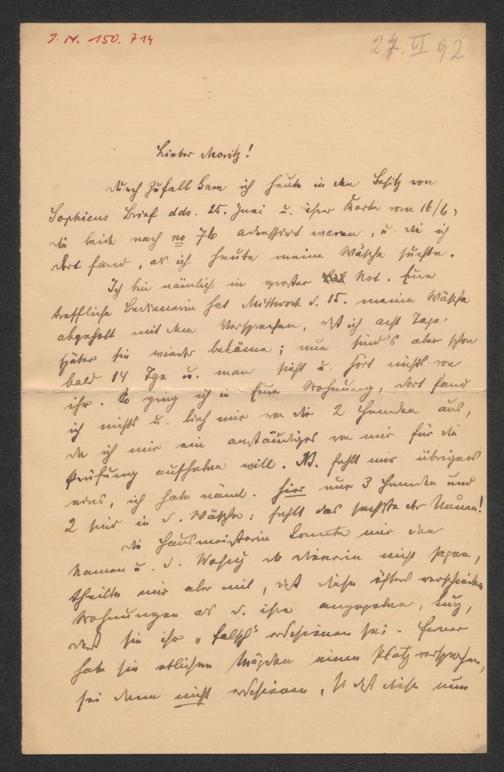 J. N. 150.714
27. VI 92
Lieber Moritz!
Durch Zufall kam ich heute in den Besitz von
Sophiens Brief ddo. 25. Juni u. ihrer Karte vom 16/6,
die beide nach no 76 adressirt waren, u. die ich
dort fand, als ich heute meine Wäsche suchte.
Ich bin nämlich in großer Not. Eure
treffliche Bedienerin hat Mittwoch d. 15. meine Wäsche
abgeholt mit dem Versprechen, daß ich acht Tage
später sie wieder bekäme; nun sind's aber schon
bald 14 Tge u. man sieht u. hört nichts von
ihr. So ging ich in Eure Wohnung, dort fand
ich nichts u. lieh mir von dir 2 Hemden aus,
da ich mir ein anständiges von mir für die
Prüfung aufheben will. NB. fehlt mir übrigens
eines, ich habe näml. hier nur 3 Hemden und
2 sind in d. Wäsche: fehlt das sechste der Namen!
Die Hausmeisterin konnte mir den
Namen u. d. Wohng der Dienerin nicht sagen,
theilte mir aber mit, daß diese öfters verschiedene
Wohnungen als d. ihre angegeben,
daß sie ihr „falsch" erschienen sei. Ferner
habe sie etlichen Mägden einen Platz versprochen,
sei dann nicht erschienen, so daß diese nun